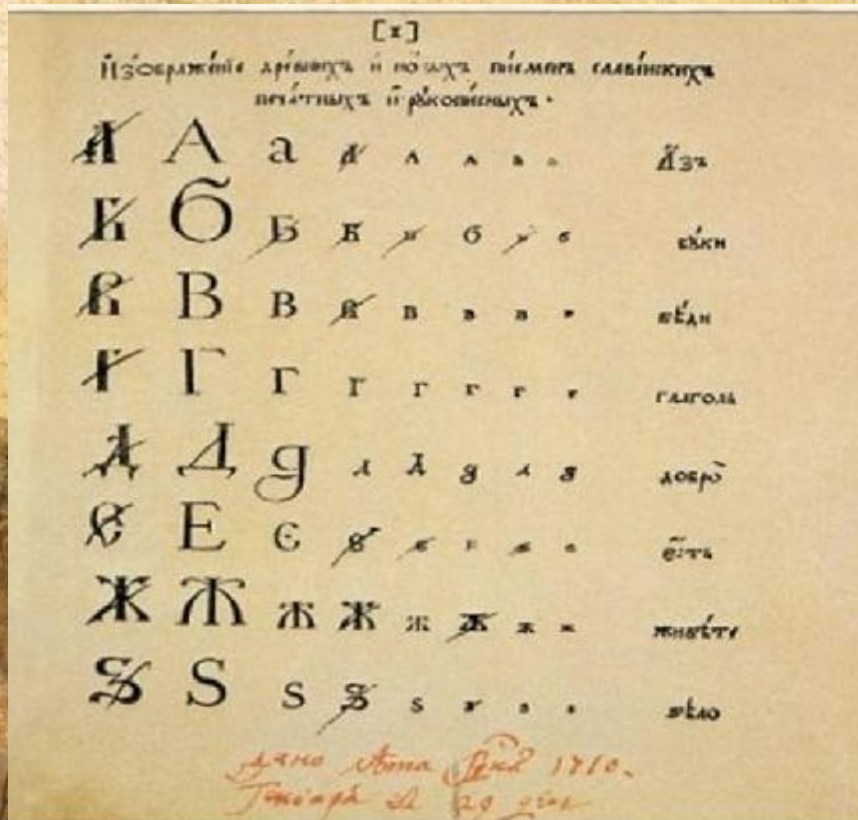 [1]
И҆зображе́нїе дре́внихъ и҆ но́выхъ пи́сменъ славе́нскихъ
печа́тныхъ и҆ рꙋкопи́сныхъ.
А А а А а а а а А҆́зъ
Б Б Б Б б б б б бꙋ́ки
В В в в в в в в вѣ́ди
Г Г г г г г г г глаго́ль
Д Д д д д д д д добро̀
Є Е є є є е є є є҆́сть
Ж Ж ж ж ж ж ж ж живѣ́те
Ѕ Ѕ ѕ ѕ ѕ ѕ ѕ ѕ ѕѣлѡ̀
дано лѣта 1710.
Генваря 29 день